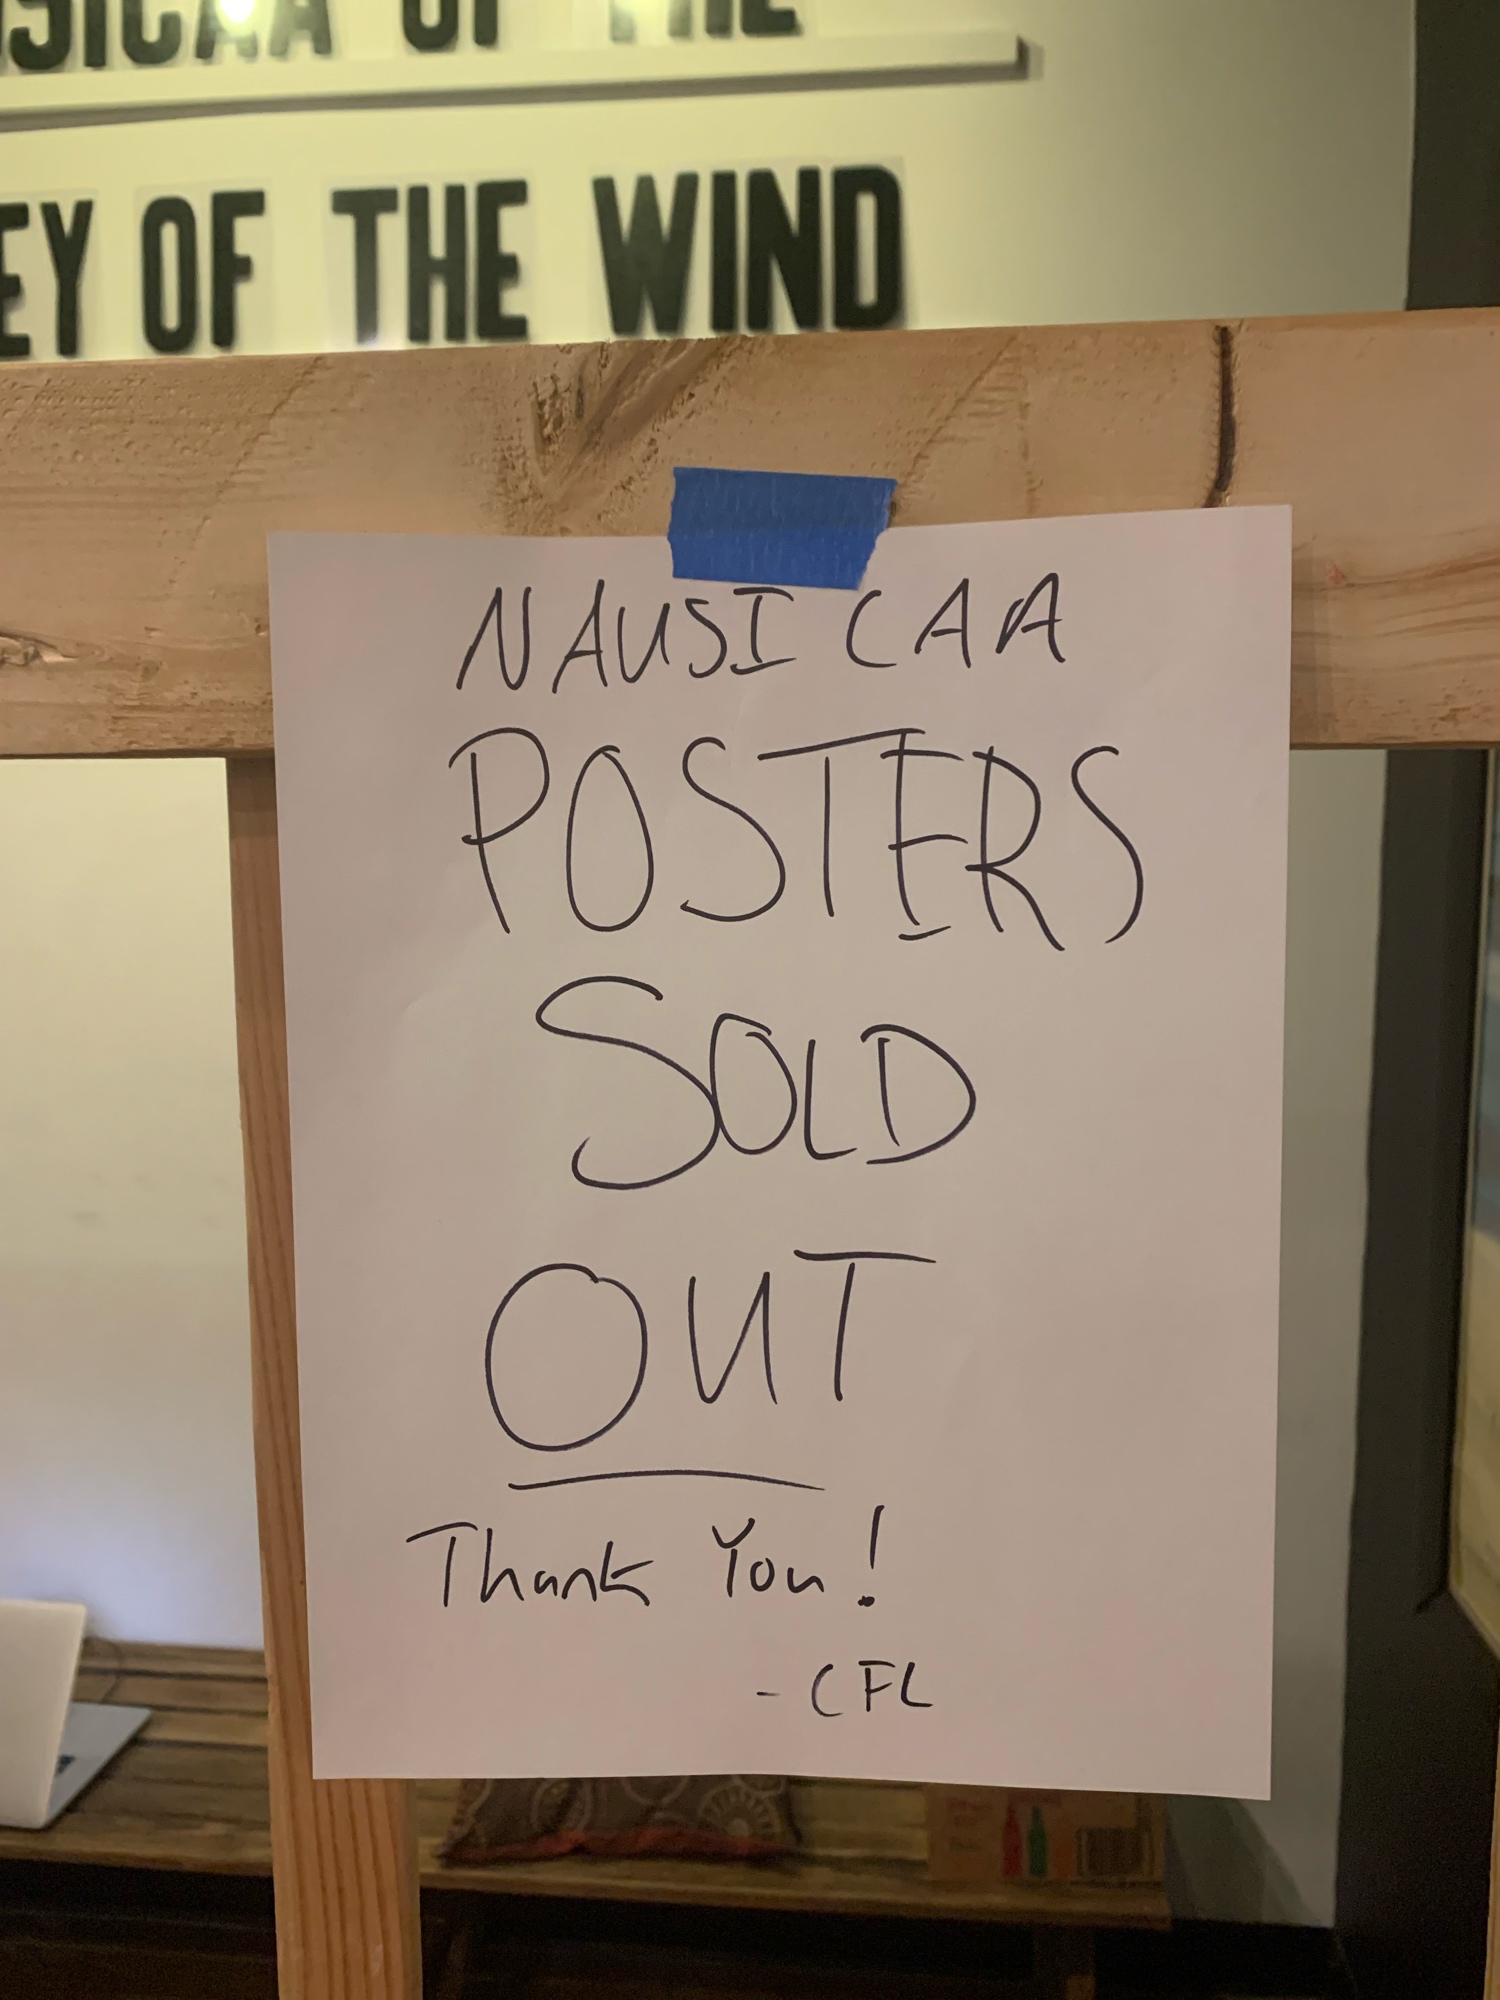 OF THE
EY OF THE WIND
NAUSICAA
POSTERS
SOLD
OUT
Thank You!
- CFL